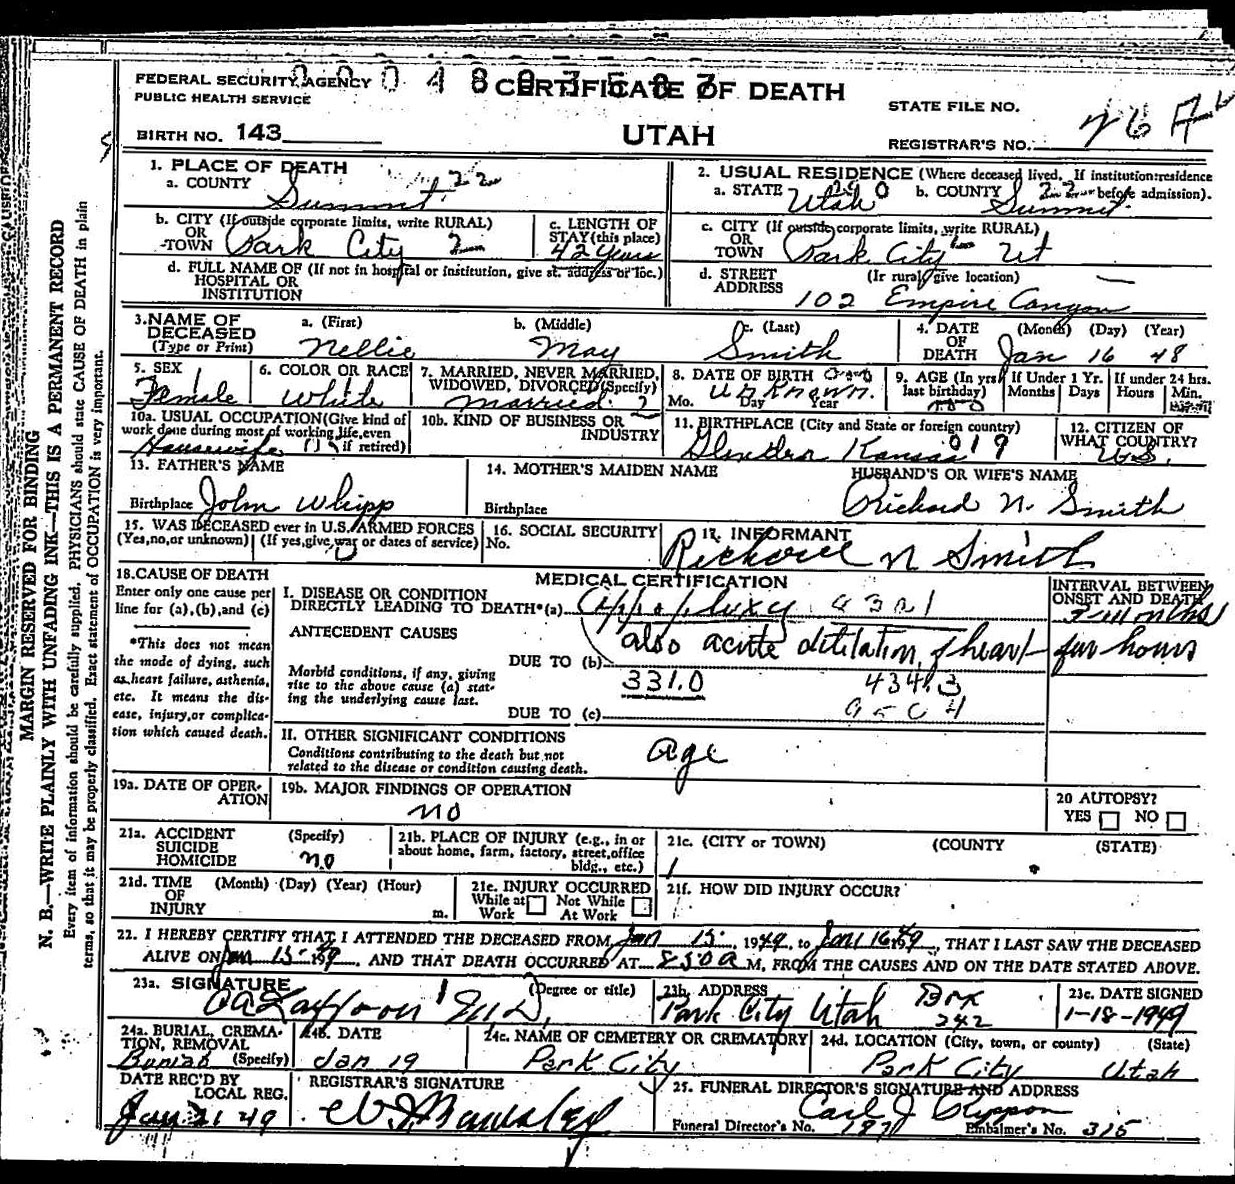 FEDERAL SECURITY AGENCY
PUBLIC HEALTH SERVICE
CERTIFICATE OF DEATH
STATE FILE NO.
BIRTH NO. 143
UTAH
REGISTRAR'S NO.
1. PLACE OF DEATH
a. COUNTY Summit 22
2. USUAL RESIDENCE (Where deceased lived. If institution:residence before admission).
a. STATE Utah b. COUNTY Summit 22
b. CITY (If outside corporate limits, write RURAL)
OR
TOWN Park City 2
c. LENGTH OF
STAY (this place)
42 Years
c. CITY (If outside corporate limits, write RURAL)
OR
TOWN Park City Ut
d. FULL NAME OF (If not in hospital or institution, give st. address or loc.)
HOSPITAL OR
INSTITUTION
d. STREET (If rural give location)
ADDRESS 102 Empire Canyon
3. NAME OF
DECEASED
(Type or Print)
a. (First) b. (Middle) c. (Last)
Nellie May Smith
4. DATE (Month) (Day) (Year)
OF
DEATH Jan 16 48
5. SEX
Female
6. COLOR OR RACE
White
7. MARRIED, NEVER MARRIED,
WIDOWED, DIVORCED (Specify)
Married
8. DATE OF BIRTH
Mo. Day Year
Unknown.
9. AGE (In yrs
last birthday)
If Under 1 Yr.
Months Days
If under 24 hrs.
Hours Min.
10a. USUAL OCCUPATION (Give kind of
work done during most of working life, even
if retired)
Housewife
10b. KIND OF BUSINESS OR
INDUSTRY
11. BIRTHPLACE (City and State or foreign country)
Kansas 019
12. CITIZEN OF
WHAT COUNTRY?
U.S.
13. FATHER'S NAME
Birthplace John Whipp
14. MOTHER'S MAIDEN NAME
Birthplace
HUSBAND'S OR WIFE'S NAME
Richard N. Smith
15. WAS DECEASED ever in U.S. ARMED FORCES
(Yes, no, or unknown) (If yes, give war or dates of service)
16. SOCIAL SECURITY
No.
17. INFORMANT
Richard N Smith
18. CAUSE OF DEATH
Enter only one cause per
line for (a), (b), and (c)
*This does not mean
the mode of dying, such
as heart failure, asthenia,
etc. It means the dis-
ease, injury, or complica-
tion which caused death.
MEDICAL CERTIFICATION
INTERVAL BETWEEN
ONSET AND DEATH
I. DISEASE OR CONDITION
DIRECTLY LEADING TO DEATH*(a) Appoplexy
ANTECEDENT CAUSES
also acute ditilation of heart few hours
DUE TO (b)
Morbid conditions, if any, giving
rise to the above cause (a) stat-
ing the underlying cause last.
331.0 434.3
DUE TO (c)
II. OTHER SIGNIFICANT CONDITIONS
Conditions contributing to the death but not
related to the disease or condition causing death.
Age
19a. DATE OF OPER-
ATION
19b. MAJOR FINDINGS OF OPERATION
no
20 AUTOPSY?
YES NO
21a. ACCIDENT
SUICIDE
HOMICIDE
(Specify)
no
21b. PLACE OF INJURY (e.g., in or
about home, farm, factory, street, office
bldg., etc.)
21c. (CITY OR TOWN) (COUNTY (STATE)
21d. TIME (Month) (Day) (Year) (Hour)
OF
INJURY m.
21e. INJURY OCCURRED
While at Work Not While At Work
21f. HOW DID INJURY OCCUR?
22. I HEREBY CERTIFY THAT I ATTENDED THE DECEASED FROM Jan 15 1949, to Jan 16 49, THAT I LAST SAW THE DECEASED
ALIVE ON Jan 15 49, AND THAT DEATH OCCURRED AT 850 a M, FROM THE CAUSES AND ON THE DATE STATED ABOVE.
23a. SIGNATURE (Degree or title)
23b. ADDRESS
Park City Utah Box
242
23c. DATE SIGNED
1-18-1949
24a. BURIAL, CREMA-
TION, REMOVAL
(Specify) Burial
24b. DATE
Jan 19
24c. NAME OF CEMETERY OR CREMATORY
Park City
24d. LOCATION (City, town, or county) (State)
Park City Utah
DATE REC'D BY
LOCAL REG.
Jan 21 49
REGISTRAR'S SIGNATURE
25. FUNERAL DIRECTOR'S SIGNATURE AND ADDRESS
Carl J
Funeral Director's No. Embalmer's No. 315
MARGIN RESERVED FOR BINDING
N. B.—WRITE PLAINLY WITH UNFADING INK—THIS IS A PERMANENT RECORD
Every item of information should be carefully supplied. PHYSICIANS should state CAUSE OF DEATH in plain
terms, so that it may be properly classified. Exact statement of OCCUPATION is very important.